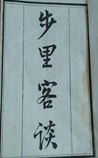 步里客谈